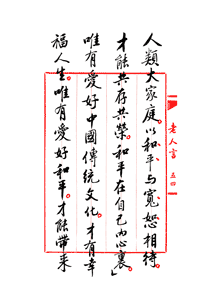 老人言 五四
人類大家庭。以和平与寬恕相待。
才能共存共榮。和平在自己內心裏。」
唯有愛好中國傳統文化。才有幸
福人生。唯有愛好和平。才能帶來